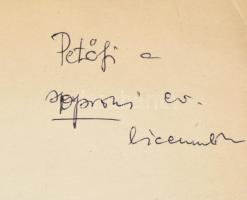 Petőfi a
soproni ev.
liceumban